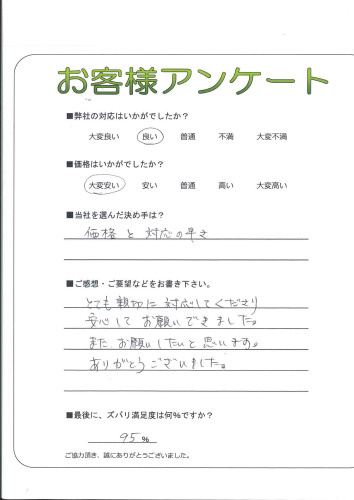 お客様アンケート
■弊社の対応はいかがでしたか?
大変良い 良い 普通 不満 大変不満
■価格はいかがでしたか?
大変安い 安い 普通 高い 大変高い
■当社を選んだ決め手は?
価格と対応の早さ
■ご感想・ご要望などをお書き下さい。
とても親切に対応してくださり
安心してお願いできました。
またお願いしたいと思います。
ありがとうございました。
■最後に、ズバリ満足度は何%ですか?
95 %
ご協力頂き、誠にありがとうございました。